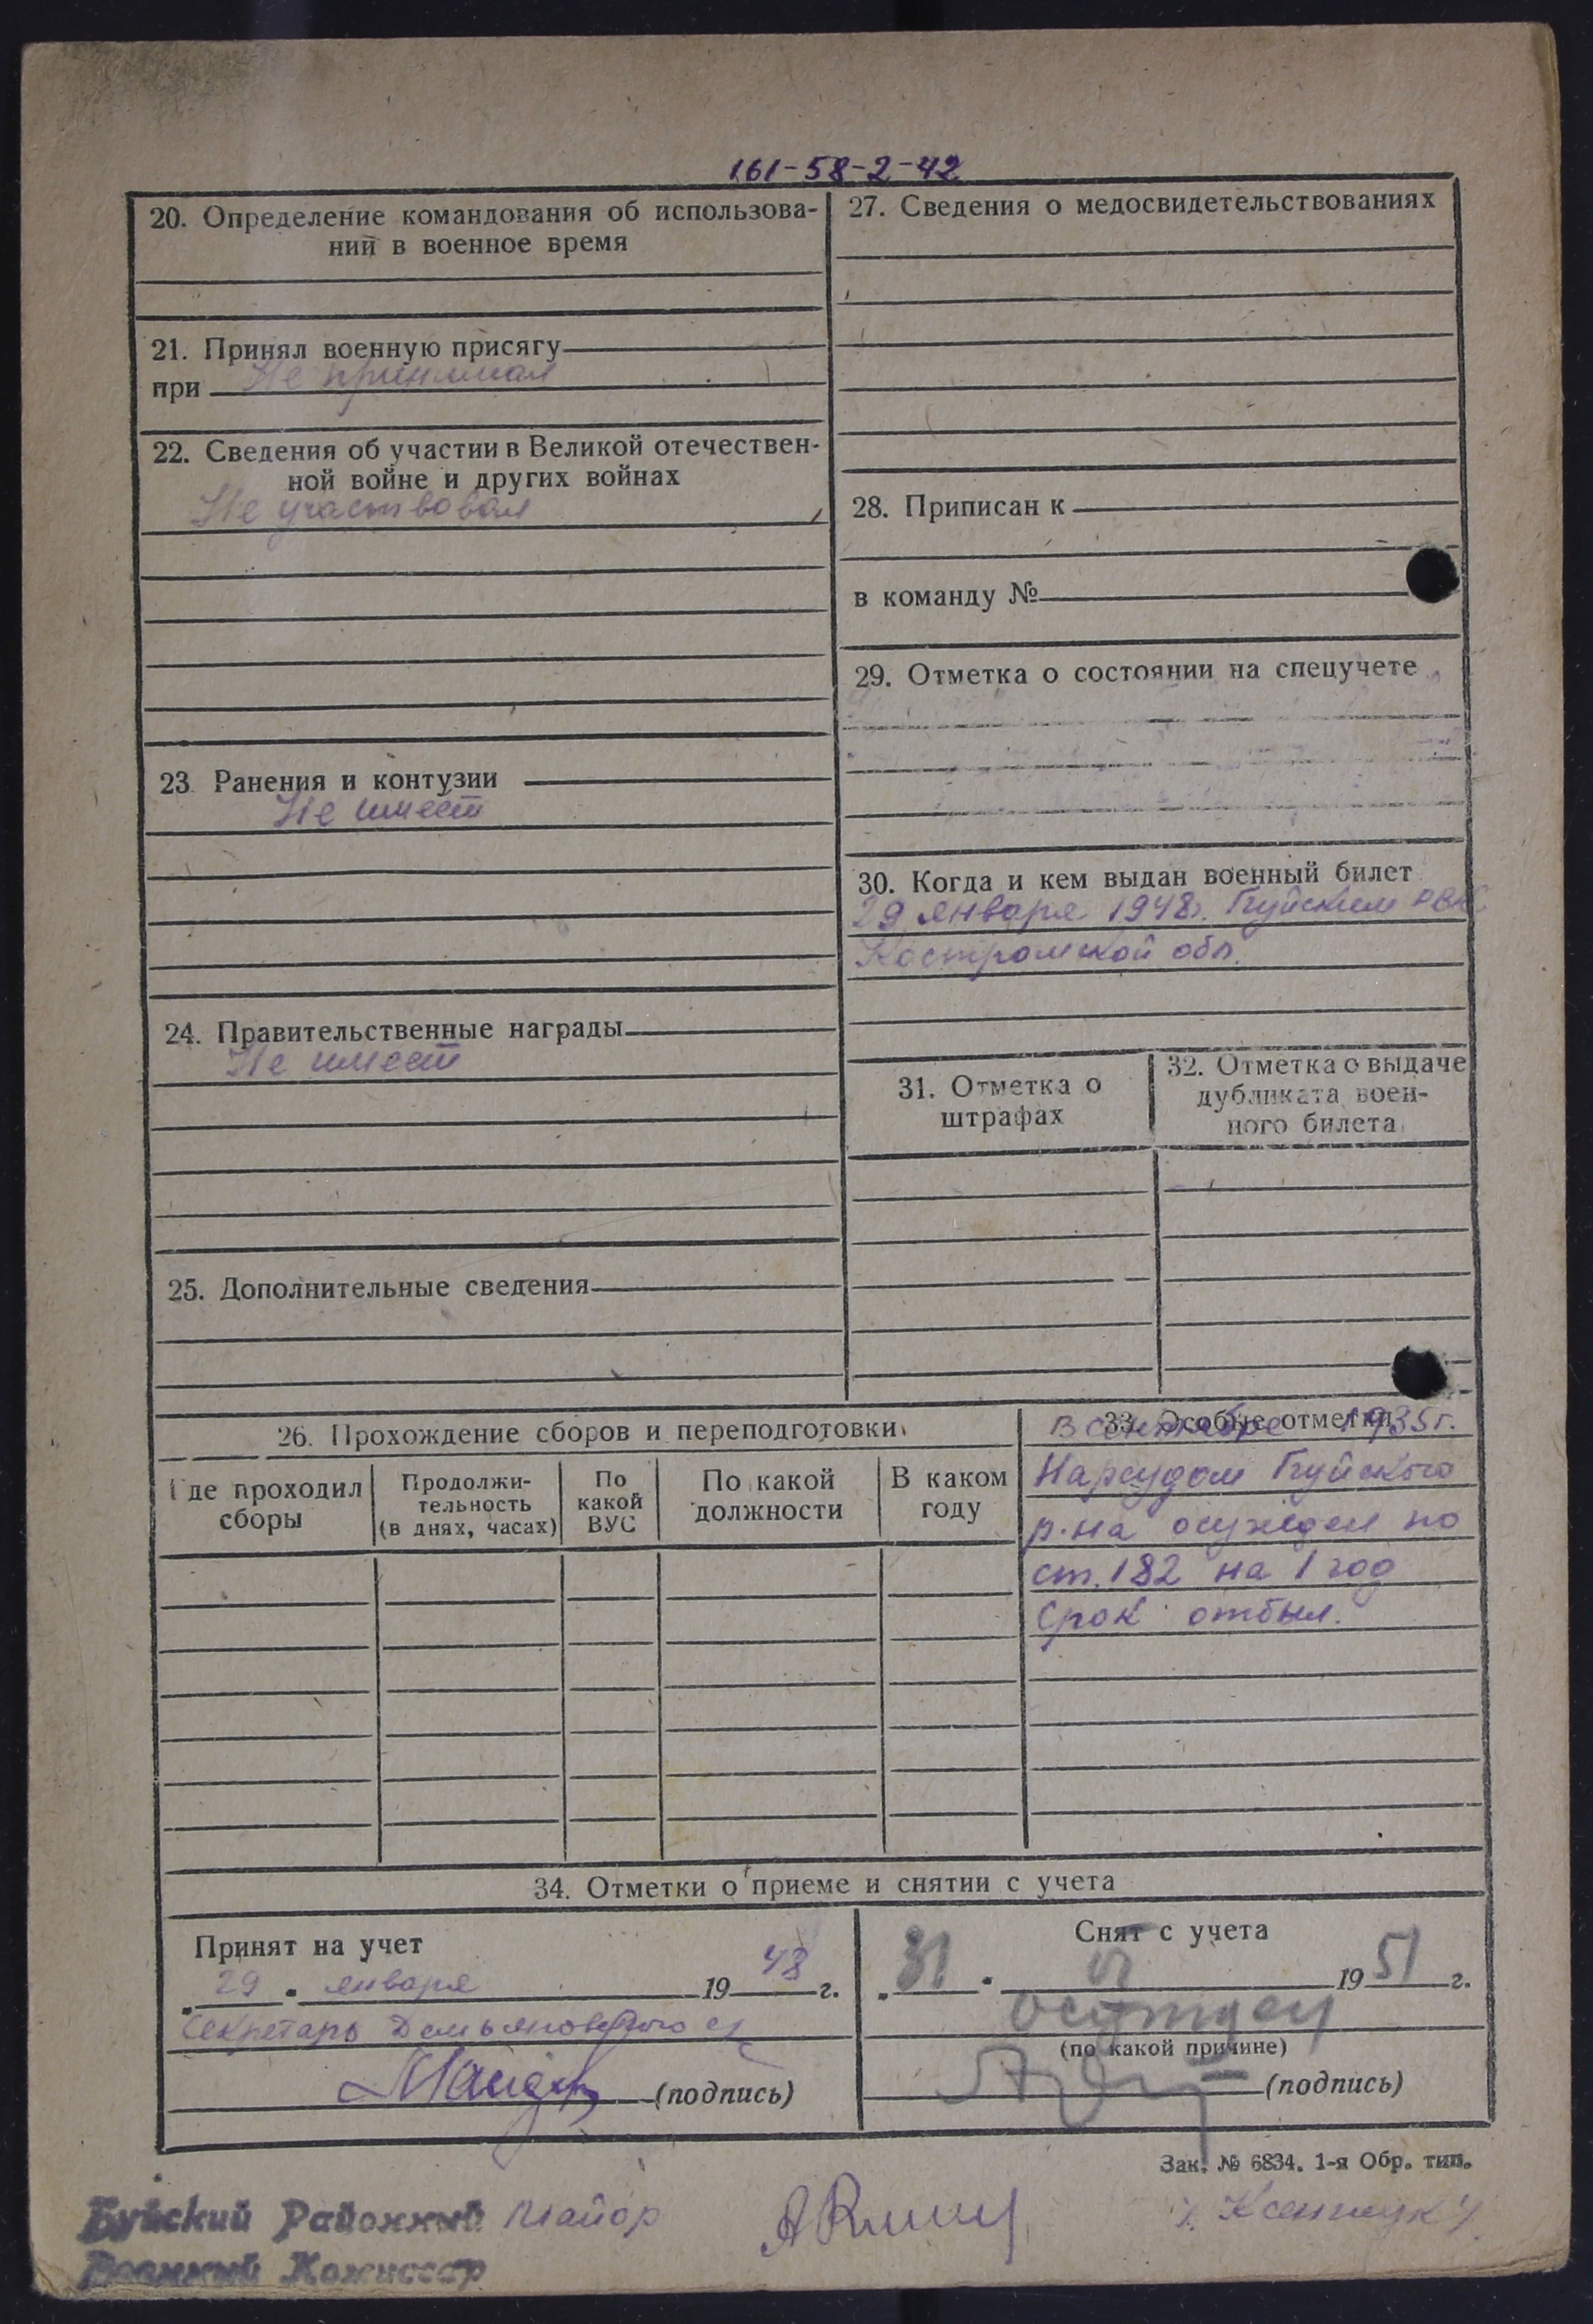 161-58-2-42
20. Определение командования об использова-
нии в военное время
21. Принял военную присягу
при Не принимал
22. Сведения об участии в Великой отечествен-
ной войне и других войнах
Не участвовал
23. Ранения и контузии
Не имеет
24. Правительственные награды
Не имеет
25. Дополнительные сведения
27. Сведения о медосвидетельствованиях
28. Приписан к
в команду №
29. Отметка о состоянии на спецучете
30. Когда и кем выдан военный билет
29 января 1948г. Буйским РВК
Костромской обл.
31. Отметка о
штрафах
32. Отметка о выдаче
дубликата воен-
ного билета
26. Прохождение сборов и переподготовки
Где проходил
сборы
Продолжи-
тельность
(в днях, часах)
По
какой
ВУС
По какой
должности
В каком
году
33. Особые отметки
В сентябре 1935г.
Нарсудом Буйского
р-на осужден по
ст. 182 на 1 год
Срок отбыл.
34. Отметки о приеме и снятии с учета
Принят на учет
„29“ января 1948 г.
Секретарь Демьяновского с/
(подпись)
Снят с учета
„31“ 1951 г.
осужден
(по какой причине)
(подпись)
Зак. № 6834. 1-я Обр. тип.
Буйский Районный майор
Военный Комиссар